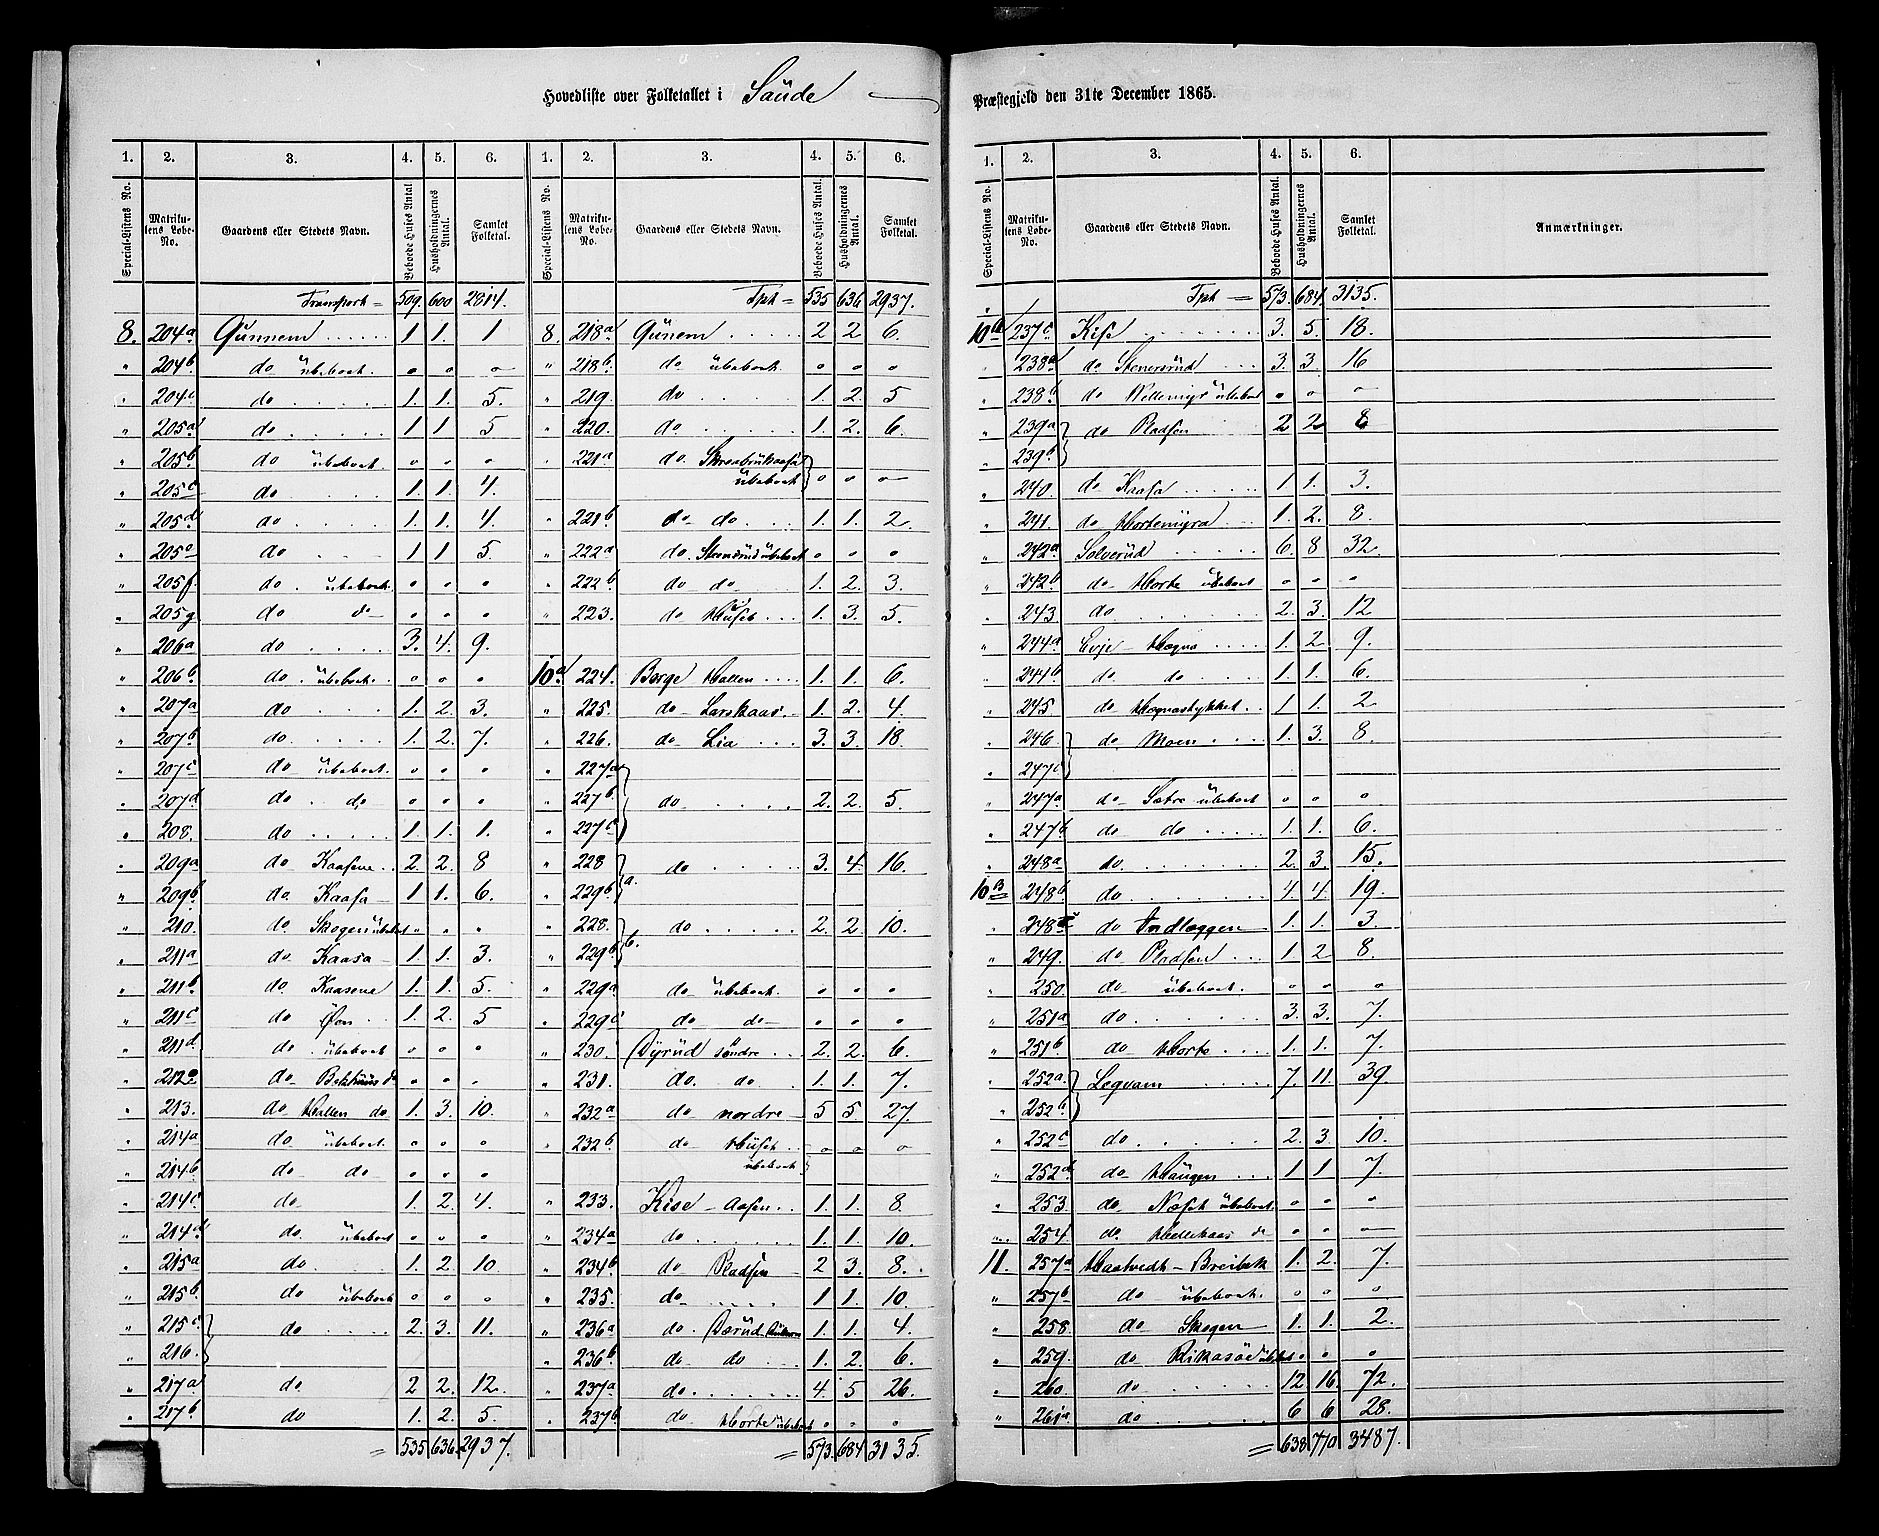 Hovedliste over Folketallet i Saude
Præstegjeld den 31te December 1865.
1. 2. 3. 4. 5. 6. 1. 2. 3. 4. 5. 6.
Special-Listens No. Matrikulens Løbe-No. Gaardens eller Stedets Navn. Beboede Huses Antal Husholdningernes Antal. Samlet Folketal. Special-Listens No. Matrikulens Løbe-No. Gaardens eller Stedets Navn. Beboede Huses Antal. Husholdningernes Antal. Samlet Folketal.
Transport = 509. 600 2814.
8. 204a Gunnem 1 1. 1
" 204b do übeboet. o o o
" 204c do 1. 1. 5.
" 205a do 1 1 5
" 205b do übeboet o o o
" 205c do 1. 1. 4.
" 205d do 1. 1. 4.
" 205e do 1 1 5.
" 205f. do übeboet o o o
" 205g do do o o o
" 206a do 3. 4. 9.
" 206b do übeboet. o o o
" 207a do 1. 2. 3.
" 207b do 1. 2. 7.
" 207c do übeboet. o o o
" 207d do do o o o
" 208. do 1. 1. 1.
" 209a do Kaasene 2. 2. 8
" 209b do Kaasa 1 1. 6.
" 210. do Skogen übeboet " " "
" 211a do Kaasa 1. 1. 3.
" 211b do Kaasene 1. 1. 5.
" 211c do Øen 1. 2. 5
" 211d. do übeboet o o o
" 212 do do o o o
" 213. do Hallen do. 1. 3. 10.
" 214a do übeboet. o o o
" 214b do do o o o
" 214c do 1. 2. 4.
" 214d do übeboet o o o
" 215a do 1. 2. 10
" 215b do übeboet o o o
" 215c do 2. 3. 11.
" 216.
" 217a do 2 2. 12.
" 217b do 1. 2. 5.
= 535 636. 2937.
Tpt = 535 636 2937.
8. 218a Gunem 2 2 6.
" 218b do übeboet o o o
" 219. do 1. 2. 5
" 220. do 1. 2. 6.
" 221a do
übeboet o o o
" 221b do do. 1. 1. 2.
" 222a do übeboet o o o
" 222b do do 1. 2. 3.
" 223. do Huset 1. 3. 5.
10a 224. Borge Hallen 1. 1. 6.
" 225. do Larskaas. 1. 2. 4.
" 226. do Lia 3. 3. 18.
" 227a
" 227b do 2. 2. 5.
" 227c
" 228 do 3. 4. 16.
" 229b a.
" 228. do 2. 2. 10.
" 229b b.
" 229 do übeboet. o o o
" 229c do do o o o
" 230. Dyrüd søndre 2. 2. 6.
" 231. do do 1. 1. 7.
" 232a do nordre 5 5 27.
" 232b do
übeboet o o o
" 233. Kise Aasen 1. 1. 8.
" 234a do 1. 1. 10.
" 234b do Pladsen 2 3. 8.
" 235. do 1 1. 10.
" 236a do. 1. 1. 4.
" 236b do do 1. 2. 6.
" 237a do 4. 5 26.
" 237b do Horte übeboet o o o
= 573. 684 3135.
1. 2. 3. 4. 5. 6.
Special-Listens No. Matrikulens Løbe-No. Gaardens eller Stedets Navn. Beboede Huses Antal. Husholdningernes Antal. Samlet Folketal. Anmærkninger.
Tpt = 573. 684. 3135.
10a 237c Kise 3. 5. 18.
" 238a do Stenersrüd 3. 3. 16
" 238b do übeboet o o o
" 239a do Pladsen 2 2 8
" 239b
" 240. do Kaasa 1 1. 3.
" 241. do Hortemyra 1. 2. 8.
" 242a Solverüd 6. 8 32.
" 242b do Horte übeboet o o o
" 243 do 2. 3. 12
" 244a Evje Høgna 1. 2. 9.
" 244b do do 1. 1. 6
" 245 do Høgnastykket 1 1. 2
" 246 do Moen 1. 3. 8.
" 247c
" 247a do Sætre übeboet o o o
" 247b do do 1. 1. 6.
" 248a do 2. 3. 15.
10B 248b do 4. 4. 19.
" 248c do 1. 1. 3
" 249. do Pladsen 1 2 8.
" 250. do übeboet. o o o
" 251a do 3. 3. 7.
" 251b do Horte 1. 1. 7.
" 252a Legvam 7. 11. 39.
" 252b
" 252c do 2. 3. 10.
" 252d do Haugen 1 1 7.
" 253. do übeboet o o o
" 254. do Hellekaas do o o o
11. 257a Haatvedt - Breibek 1. 2. 7.
" 257b do übeboet. o o o
" 258. do Skogen 1. 1. 2.
" 259. do übeboet o o o
" 260. do 12 16. 72.
" 261a do 6 6 28.
= 638 770 3487.